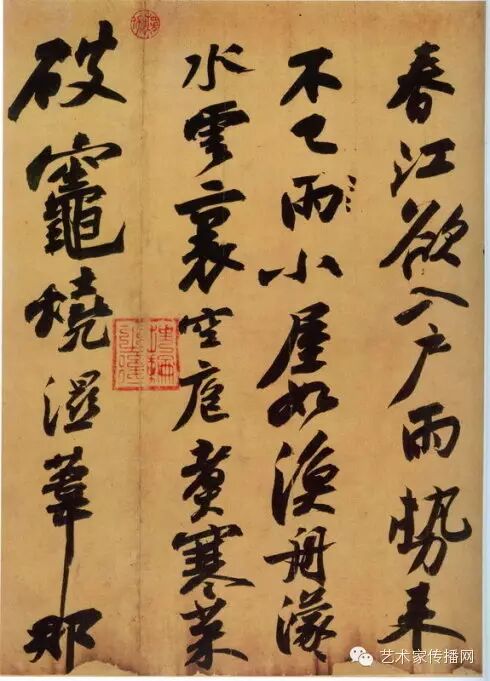 春江欲入戶雨勢來
不已雨小屋如漁舟濛〻
水雲裏空庖煮寒菜
破竈燒濕葦那
艺术家传播网